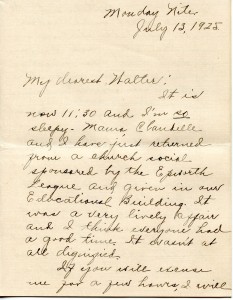 Monday Nite
July 13, 1925
My dearest Walter:
It is
now 11:30 and I'm so
sleepy - Mama
and I have just returned
from a church social
sponsored by the Epworth
League and given in our
Educational Building. It
was a very lively affair
and I think everyone had
a good time. It wasn't at
all dignified.
If you will excuse
me for a few hours, I will